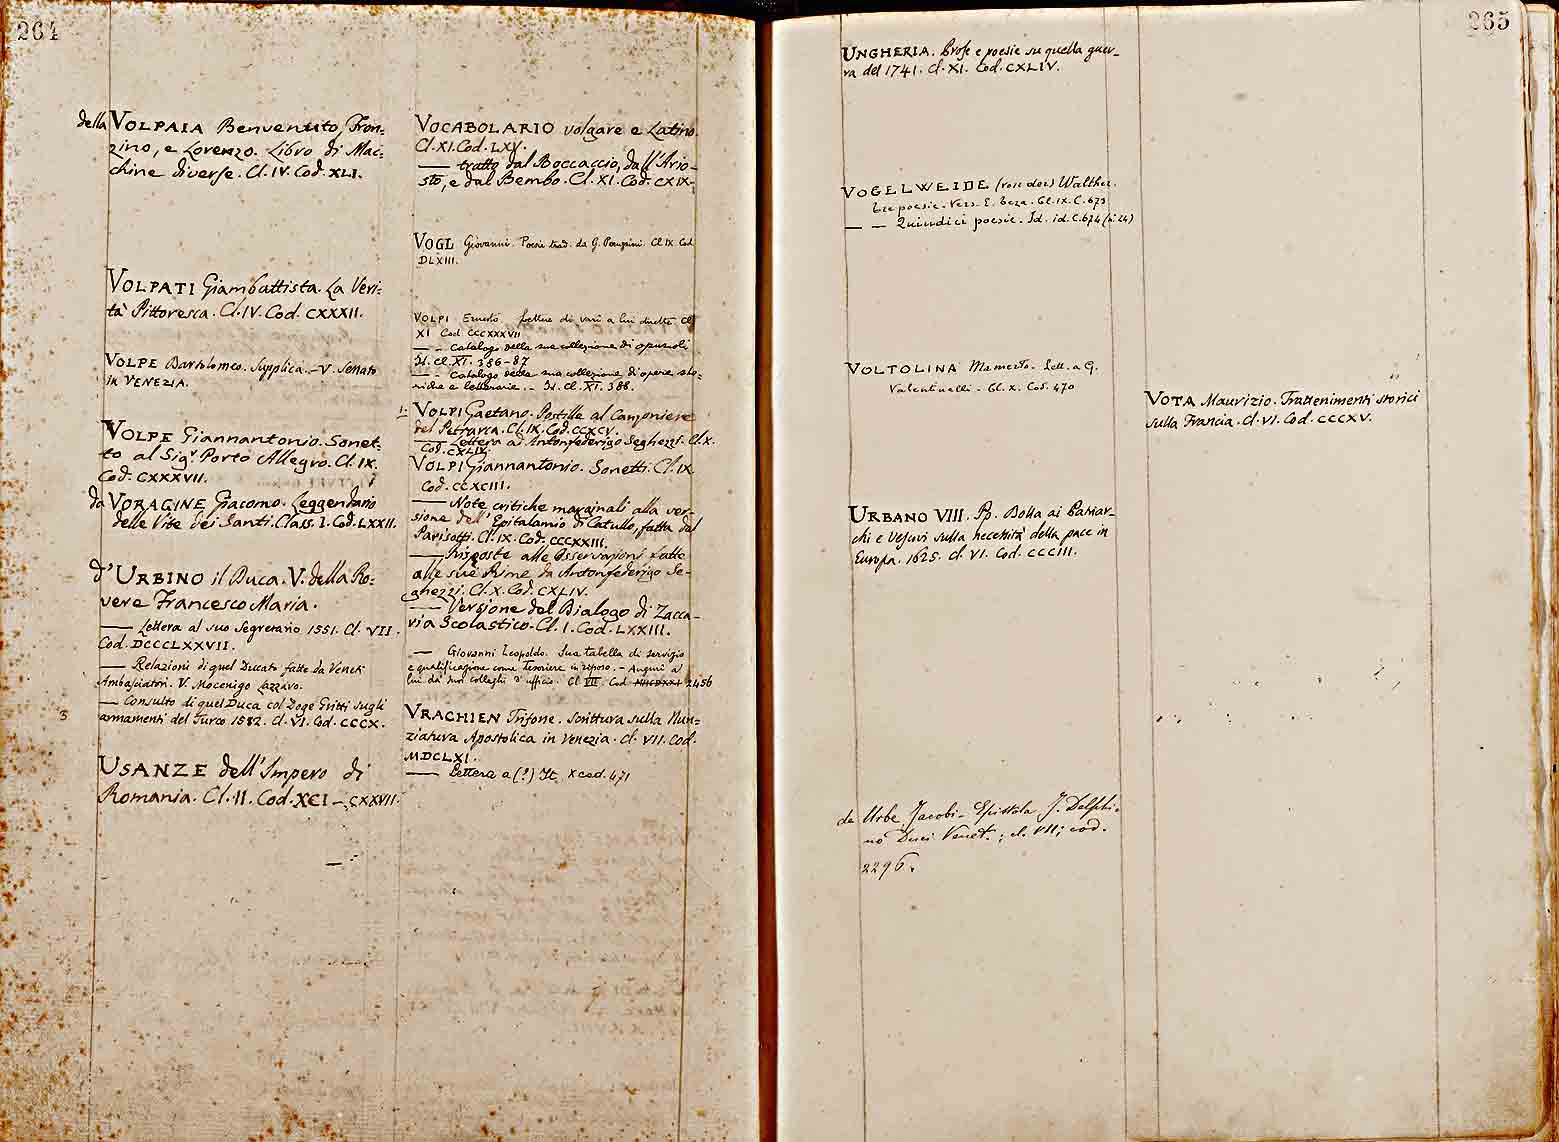 264
della VOLPAIA Benvenuto, Fron=
zino, e Lorenzo. Libro di Mac=
chine diverse. Cl. IV. Cod. XLI.
VOLPATI Giambattista. La Veri=
tà Pittoresca. Cl. IV. Cod. CXXXII.
VOLPE Bartolomeo. Supplica. – V. Senato
in VENEZIA.
VOLPE Giannantonio. Sonet=
to al Sigr. Porto Allegro. Cl. IX.
Cod. CXXXVII.
da VORAGINE Giacomo. Leggendario
delle Vite dei Santi. Class. I. Cod. LXXII.
d'URBINO il Duca. V. della Ro=
vere Francesco Maria.
— Lettera al suo Segretario 1551. Cl. VII.
Cod. DCCCLXXVII.
— Relazioni di quel Ducato fatte da Veneti
Ambasciatori. V. Mocenigo Lazzaro.
— Consulto di quel Duca col Doge Gritti sugli
3 armamenti del Turco 1582. Cl. VI. Cod. CCCX.
USANZE dell'Impero di
Romania. Cl. II. Cod. XCI – CXXVII.
VOCABOLARIO volgare e Latino.
Cl. XI. Cod. LXV.
— tratto dal Boccaccio, dall'Ario-
sto, e dal Bembo. Cl. XI. Cod. CXIX.
VOGL Giovanni. Poesie trad. da G. Cl. IX. Cod.
DLXIII.
VOLPI Ernesto. Lettere di varii a lui dirette Cl
XI Cod. CCCXXXVII
— - Catalogo della sua collezione di opuscoli
It. Cl. XI. 386-87
— - Catalogo della sua collezione di opere sto=
riche e letterarie. – It. Cl. XI. 388.
1. VOLPI Gaetano. Postille al Canzoniere
del Petrarca. Cl. IX. Cod. CCXCV.
— Lettera ad Antonfederigo Seghezzi. Cl. X.
Cod. CXLIV.
VOLPI Giannantonio. Sonetti. Cl. IX
Cod. CCXCIII.
— Note critiche marginali alla ver-
sione dell'Epitalamio di Catullo, fatta dal
Parisotti. Cl. IX. Cod. CCCXXIII.
— Risposte alle Osservazioni fatte
alle sue Rime da Antonfederigo Se-
ghezzi. Cl. X. Cod. CXLIV.
— Versione del Dialogo di Zacca-
ria Scolastico. Cl. I. Cod. LXXIII.
— Giovanni Leopoldo. Sua tabella di servigio
e qualificazione come Tesoriere in riposo. – Auguri a
lui da' suoi colleghi d'ufficio. Cl VII. Cod. 2456
VRACHIEN Trifone. Scrittura sulla Nun=
ziatura Apostolica in Venezia. Cl. VII. Cod.
MDCLXI.
— Lettera a (?) It. X cod. 471
265
UNGHERIA. Prose e poesie su quella guer-
ra del 1741. Cl. XI. Cod. CXLIV.
VOGELWEIDE (von der) Walther.
tre poesie. Vers. E. Teza. Cl. IX. C. 673
— — Quindici poesie. Id. id. C. 674 (n. 24)
VOLTOLINA Mamerto. Lett. a G.
Valentinelli. Cl. X. Cod. 470
URBANO VIII. Pp. Bolla ai Patriar-
chi e Vescovi sulla necessità della pace in
Europa. 1625. Cl. VI. Cod. CCCIII.
de Urbe Jacobi – Epistola J. Delphi-
no Duci Venet.; cl. VII; cod.
2296.
VOTA Maurizio. Trattenimenti storici
sulla Francia. Cl. VI. Cod. CCCXV.